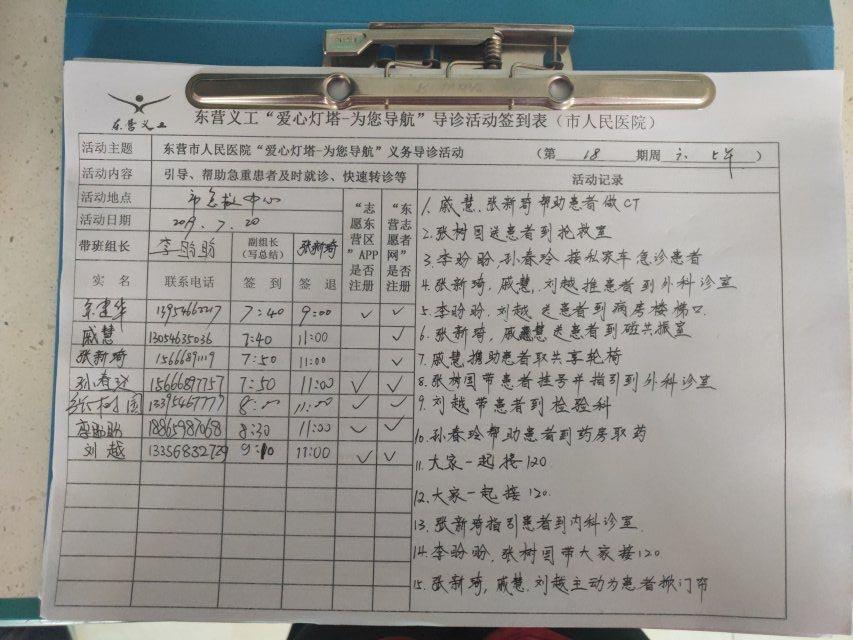 东营义工
东营义工“爱心灯塔-为您导航”导诊活动签到表（市人民医院）
活动主题 东营市人民医院“爱心灯塔-为您导航”义务导诊活动 （第 18 期周 六、七年 ）
活动内容 引导、帮助急重患者及时就诊、快速转诊等
活动地点 市急救中心
活动日期 2019.7.20
带班组长 李盼盼 副组长（写总结） 张新琦
“志愿东营区”APP是否注册
“东营志愿者网”是否注册
实名 联系电话 签到 签退
7:40 9:00 ✓ ✓
戚慧 13054635036 7:40 11:00 ✓
张新琦 7:50 11:00 ✓
孙春玲 15666897757 7:50 11:00 ✓ ✓
张树国 13395467777 8:00 11:00 ✓ ✓
李盼盼 18865987068 8:30 11:00 ✓ ✓
刘越 13356832729 9:10 11:00 ✓ ✓
活动记录
1. 戚慧.张新琦帮助患者做CT
2.张树国送患者到抢救室
3.李盼盼,孙春玲接私家车急诊患者
4.张新琦,戚慧,刘越推患者到外科诊室
5.李盼盼,刘越送患者到病房楼梯口.
6.张新琦,戚慧送患者到磁共振室
7.戚慧携助患者取共享轮椅
8.张树国带患者挂号并指引到外科诊室
9.刘越带患者到检验科
10.孙春玲帮助患者到药房取药
11.大家一起接120
12.大家一起接120.
13.张新琦指引患者到内科诊室.
14.李盼盼,张树国带大家接120
15.张新琦,戚慧.刘越主动为患者掀门帘